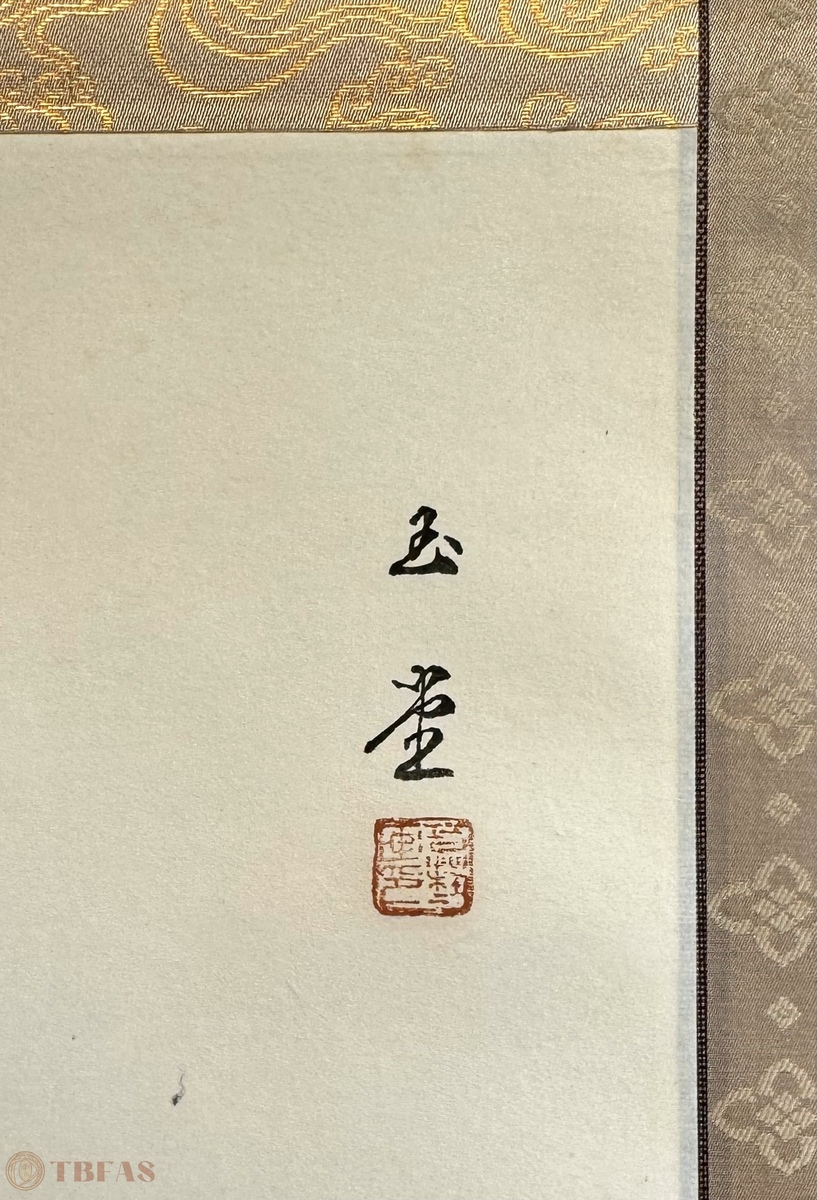 玉堂
TBFAS